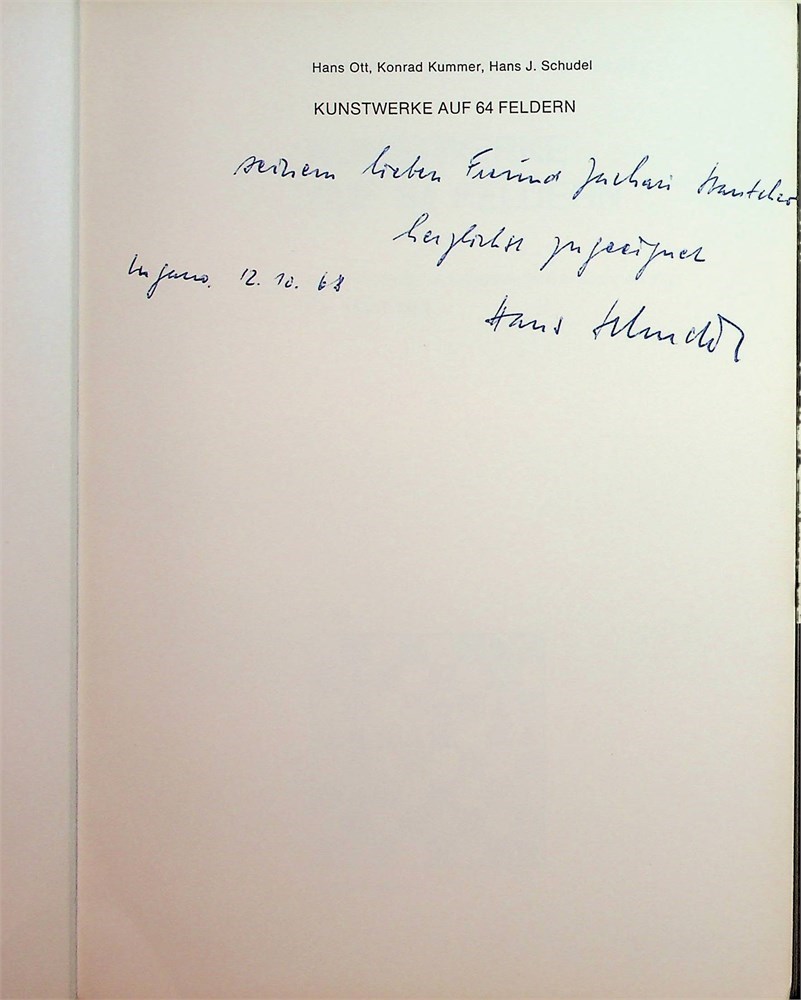 Hans Ott, Konrad Kummer, Hans J. Schudel
KUNSTWERKE AUF 64 FELDERN
seinem lieben Freund Zachari
herzlichst zugeeignet
Lugano. 12. 10. 68
Hans Schudel